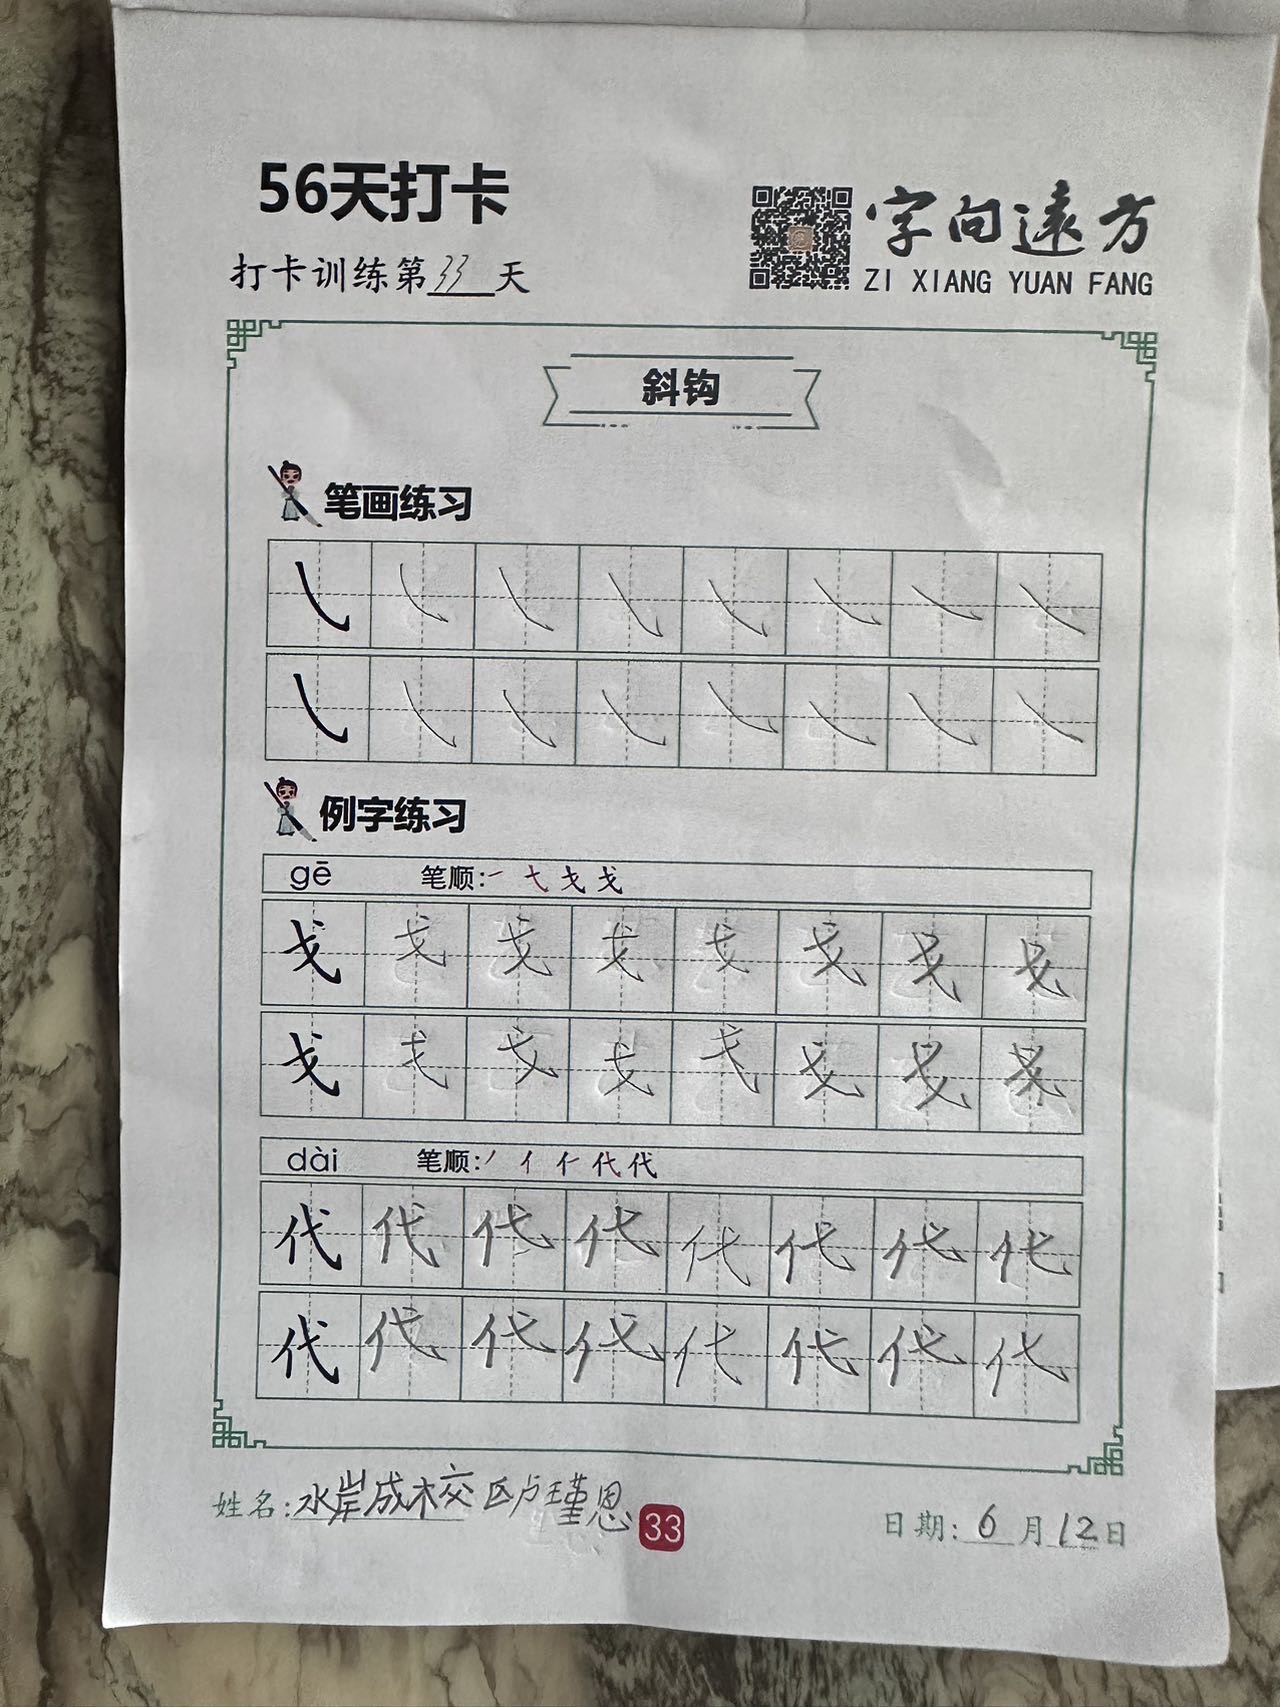 56天打卡
字向遠方
打卡训练第33天
ZI XIANG YUAN FANG
斜钩
笔画练习
例字练习
gē 笔顺:
戈 戈 戈 戈 戈 戈 戈 戈
戈 戈 戈 戈 戈 戈 戈 戈
dài 笔顺:
代 代 代 代 代 代 代 代
代 代 代 代 代 代 代 代
姓名:水岸成校区卢瑾恩 33 日期:6月12日